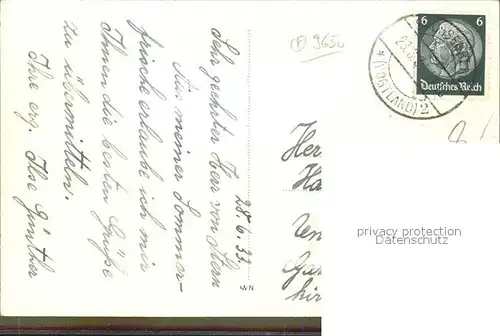 28.6.33.
Sehr geehrter Herr von Stern
Aus meiner Sommer-
frische erlaube ich mir
Ihnen die besten Grüße
zu übermitteln.
Ihre erg. Ilse Günther
9650
6 6
Deutsches Reich
(VOGTLAND) 2
Her
Ha
Gar
kir
privacy protection
Datenschutz